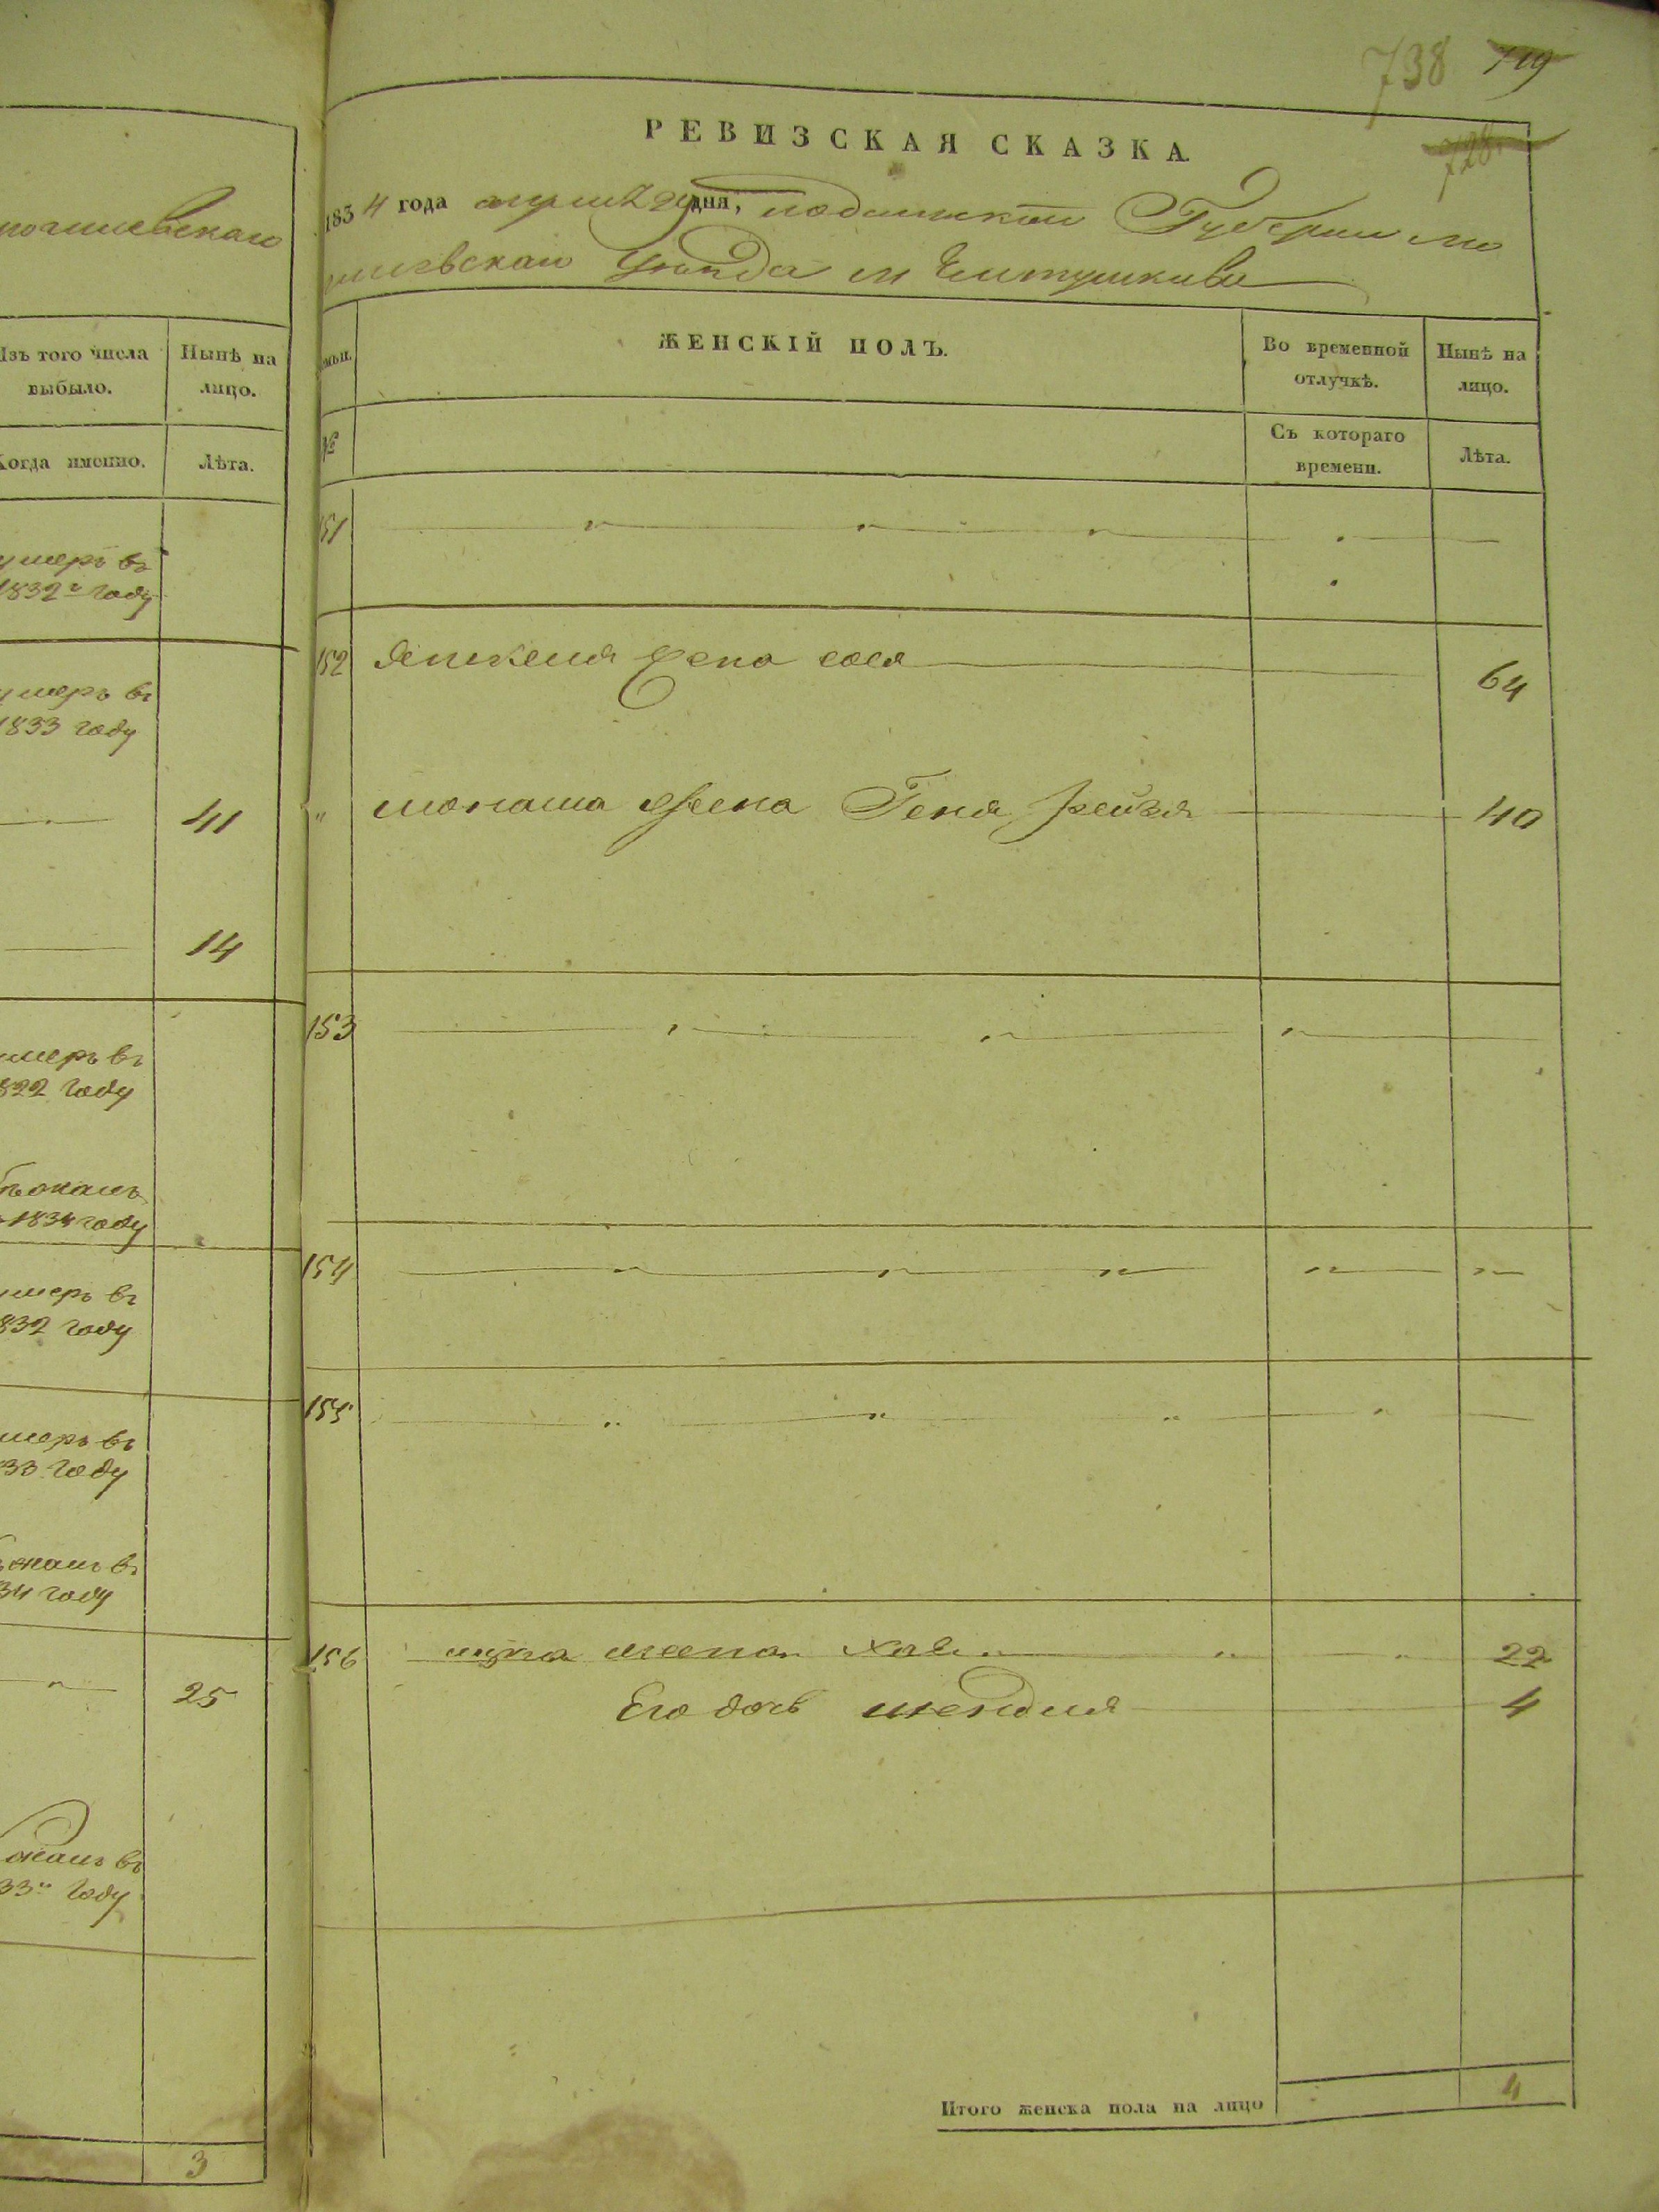 738 719
728
могилевскаго
Изъ того числа
выбыло.
Нынѣ на
лицо.
Когда именно.
Лѣта.
умеръ въ
1832го году
умеръ въ
1833 году
41
14
умеръ въ
1822 году
1834 году
умеръ въ
1832 году
умеръ въ
1833 году
въ
1834 году
25
въ
1833м году
3
РЕВИЗСКАЯ СКАЗКА
1834 года апреля дня, подольской Губернии мо
гилевскаго уезда м
ЖЕНСКІЙ ПОЛЪ.
Во временной
отлучкѣ.
Нынѣ на
лицо.
№
Съ котораго
времени.
Лѣта.
151
152 жена сося 64
" монаша жена Геня рейзя 40
153
154
155
156 жена хая 22
Его дочь шендля 4
Итого женска пола на лицо 4